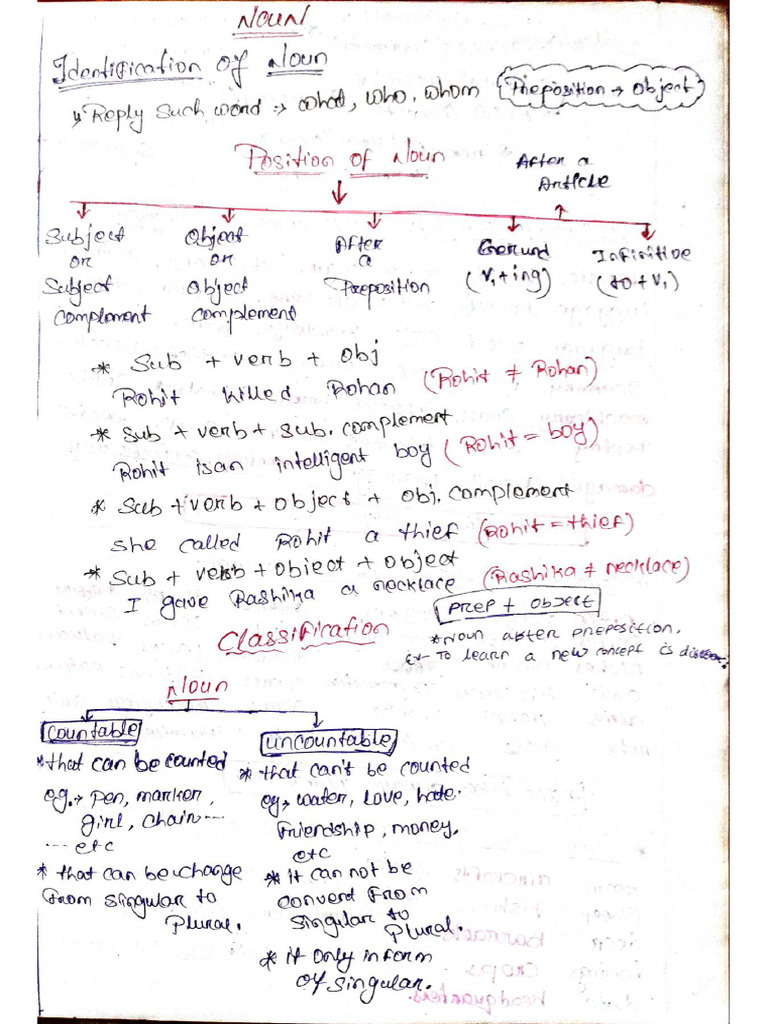 NOUN
Identification of Noun
↳ Reply such word :→ what, who, whom (Preposition → Object)
Position of Noun
After a
Article
Subject or Subject complement
Object or Object complement
After a Preposition
Gerund (V₁+ing)
Infinitive (to+V₁)
* Sub + verb + obj
Rohit killed Rohan (Rohit ≠ Rohan)
* Sub + verb + sub. complement
Rohit is an intelligent boy (Rohit = boy)
* Sub + verb + object + obj. complement
she called Rohit a thief (Rohit = thief)
* Sub + verb + object + object
I gave Rashika a necklace (Rashika ≠ necklace)
Prep + object
Classification
* Noun after preposition.
Ex- To learn a new concept is
Noun
countable
* that can be counted
eg.→ pen, marker,
girl, chain ...
... etc
* that can be change
from singular to
Plural.
uncountable
* that can't be counted
eg→ water, love, hate.
Friendship, money,
etc
* it can not be
convert from
singular to
Plural.
* it only in form
of singular.